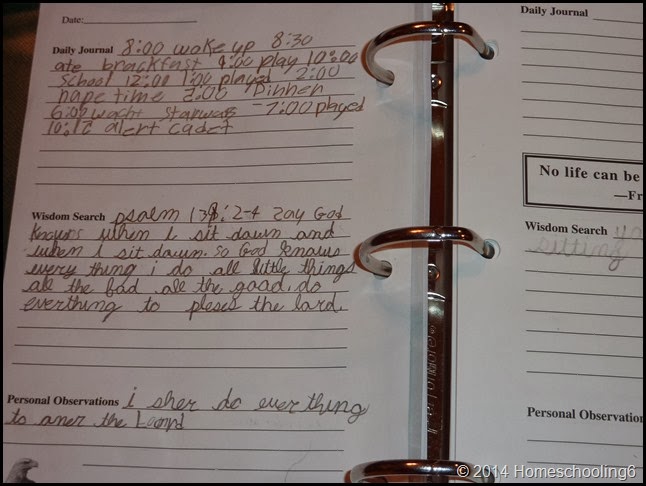 Date:
Daily Journal 8:00 woke up 8:30
ate brackfast 9:00 play 10:00
School 12:00 1:00 played 2:00
nape time 3:00 Dinner
6:00 wacht starwars 7:00 played
10:12 alert cadet
Wisdom Search psalm 139:2-4 zay God
knows when I sit dawn and
when I sit dawn. So God knows
every thing i do all little things
all the bad all the good. do
everthing to pleses the lard.
Personal Observations i sher do ever thing
to aner the
Daily Journal
No life can be
—Fr
Wisdom Search
sitting
Personal Observation
© 2014 Homeschooling6